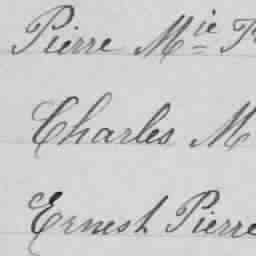 Pierre Mie
Charles M
Ernest Pierre